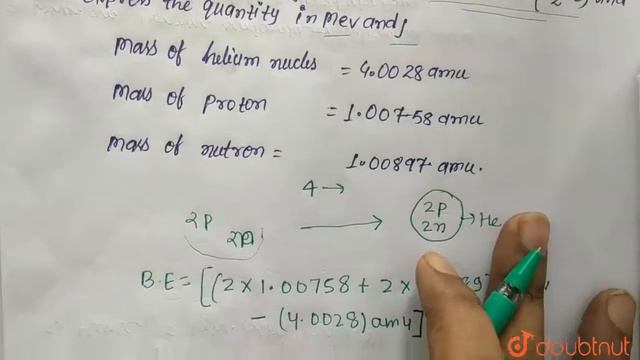 the quantity in Mev and J
Mass of helium nucles = 4.0028 amu
Mass of Proton = 1.00758 amu
Mass of nutron = 1.00897 amu.
4 →
2P
2P
2n
He
B.E = [(2 × 1.00758 + 2 ×
- (4.0028) amu]
doubtnut